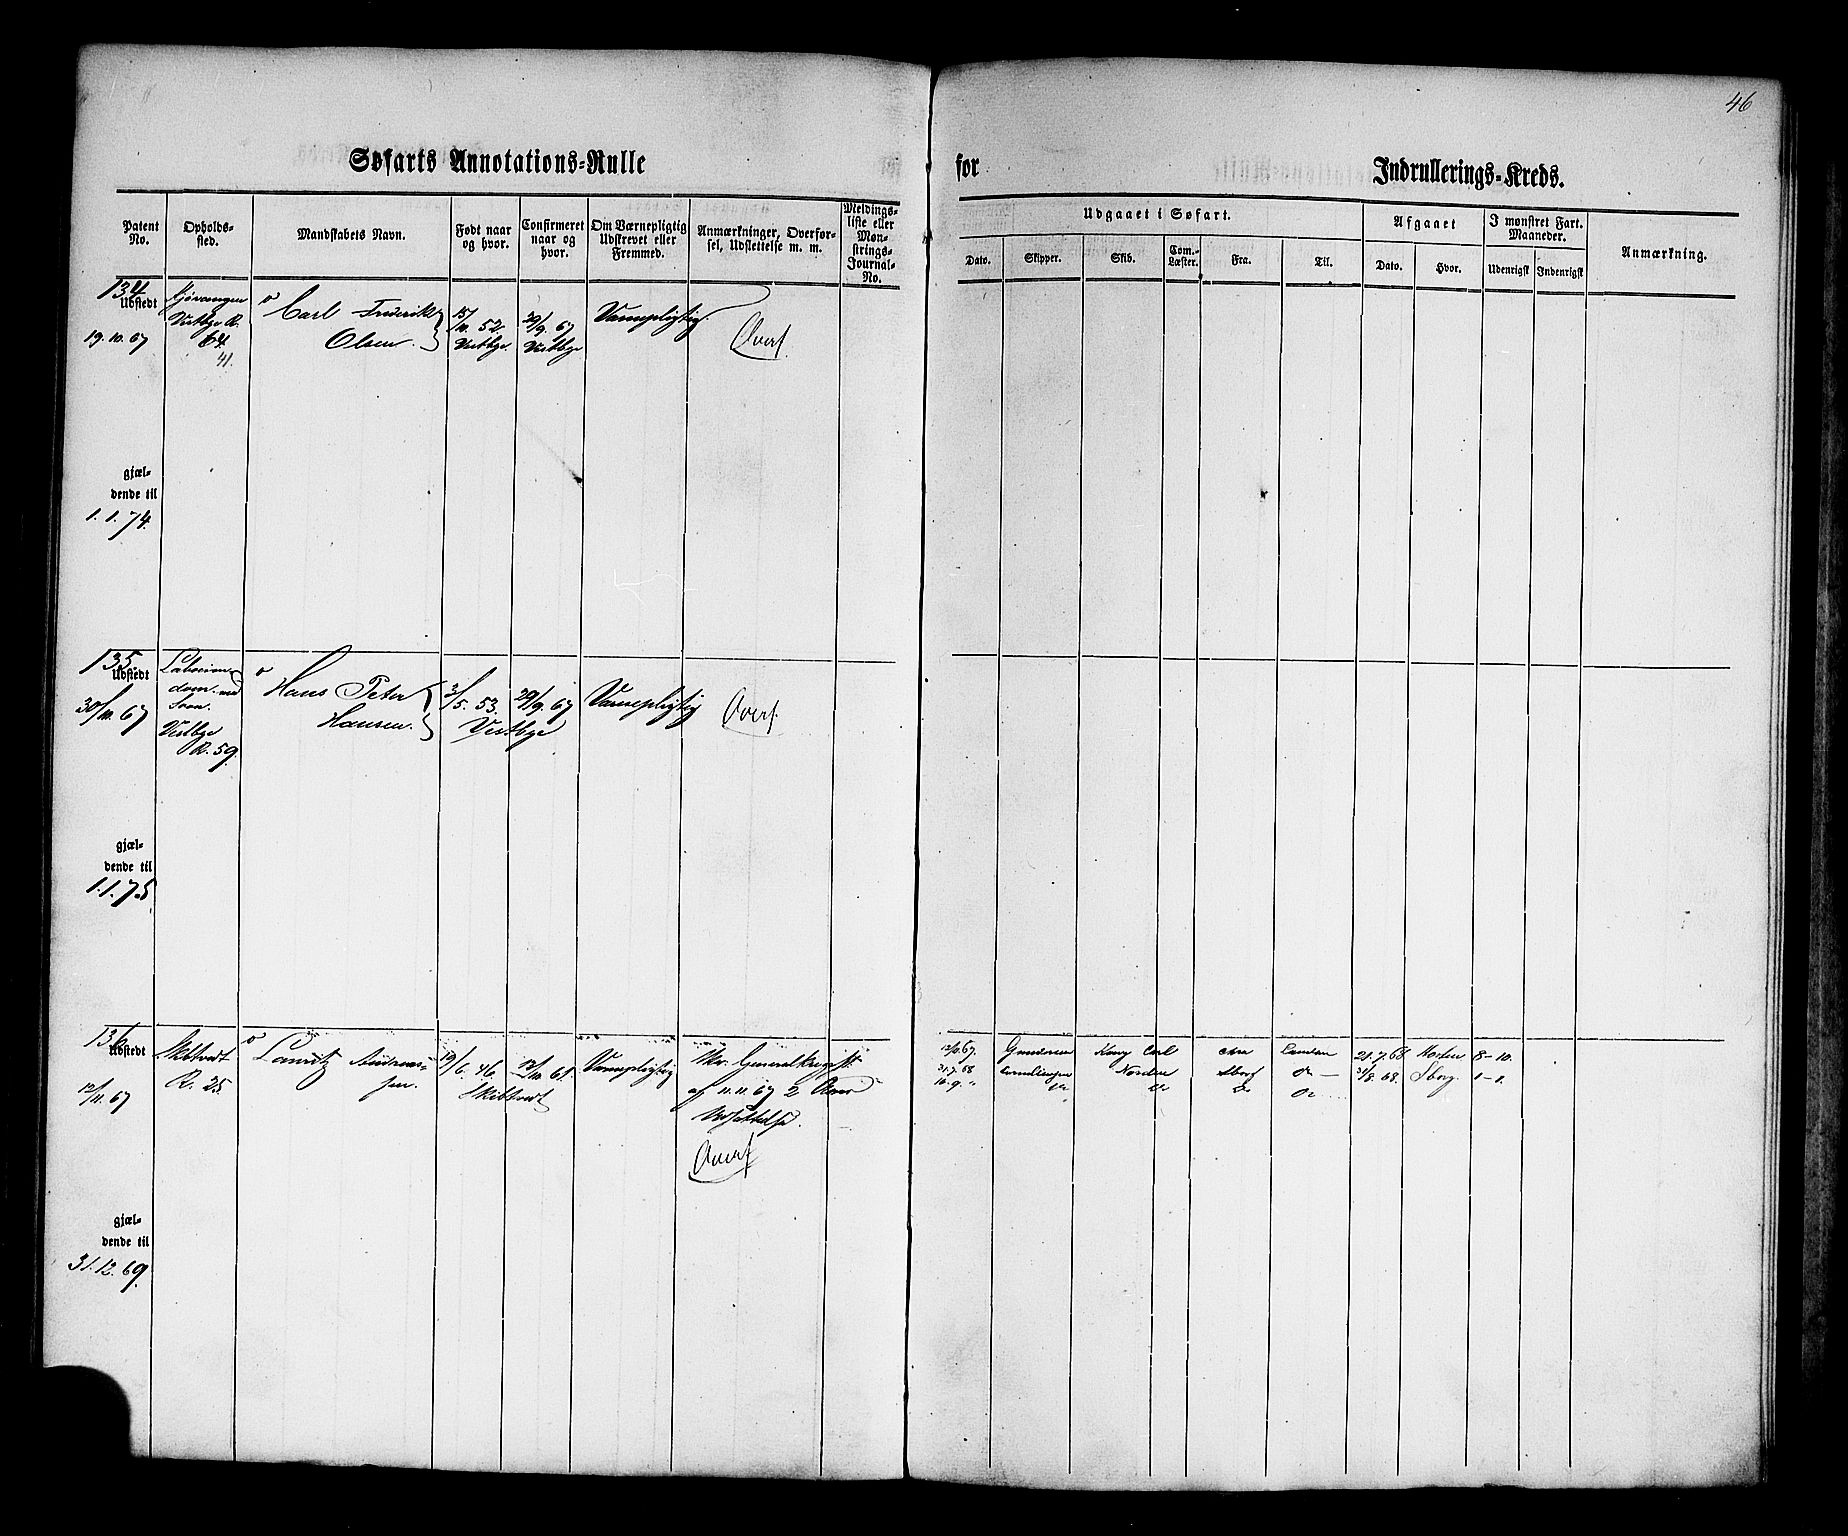 46
Søfarts Annotations-Rulle
for
Indrullerings-Kreds.
Patent No.
Opholds-sted.
Mandskabets Navn.
Født naar og hvor.
Confirmeret naar og hvor.
Om Værnepligtig Udskrevet eller Fremmed.
Anmærkninger, Overfør-sel, Udslettelse m. m.
Meldings-liste eller Møn-strings-Journal-No.
Udgaaet i Søfart.
Afgaaet
I mønstret Fart. Maaneder.
Anmærkning.
Dato.
Skipper.
Skib.
Com.-Læster.
Fra.
Til.
Dato.
Hvor.
Udenrigsk
Indenrigsk
134
Udstedt
19.10.67
Vestbye R.
64
41.
Carl Frederik
Olsen.
15/10. 52.
Vestbye.
29/9. 67
Vestbye
Værnepligtig
Overf.
gjæl-
dende til
1.1.74.
135.
Udstedt
30/10. 67
Soon.
Vestbye
R. 59.
Hans Peter
Hansen.
3/5. 53.
29/9. 67
Vestbye
Værnepligtig
Overf.
gjæl-
dende til
1.1.75
136
Udstedt
12/11. 67
Skibtvedt
R. 25.
Lauritz Andreas-
sen.
19/6. 46
Skibtvedt
Værnepligtig
af 11.11.67 2 Aars
Udsættelse.
Overf
gjæl-
dende til
31.12.69.
21.7.68
16.9. "
Kong Carl
Norden
Do
Sborg
Do
London
Do —
Do
21.7.68
31/8. 68.
Sborg.
8-10.
1-1.